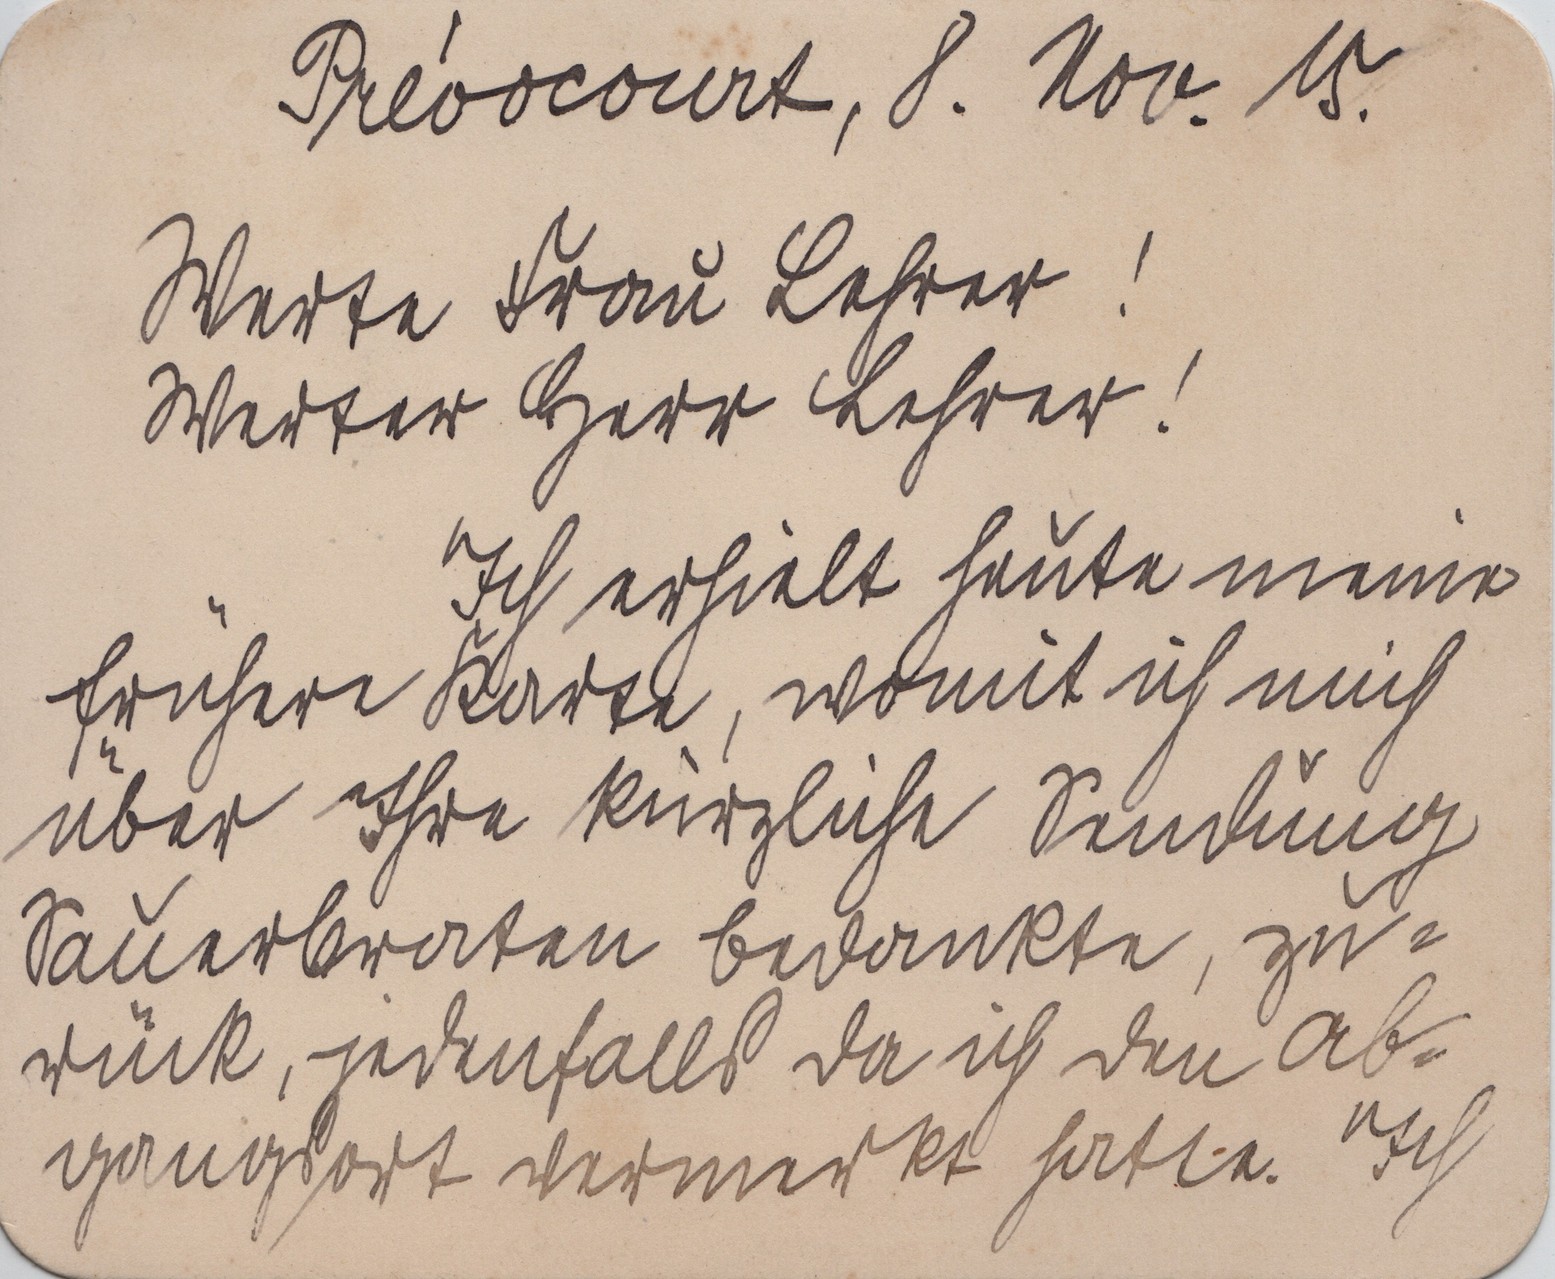 Prévocourt, 8. Nov. 15.
Werte Frau Lehrer!
Werter Herr Lehrer!
Ich erhielt heute meine
frühere Karte, womit ich mich
über Ihre kürzliche Sendung
Sauerbraten bedankte, zu=
rück, jedenfalls da ich den Ab=
gangsort vermerkt hatte. Ich